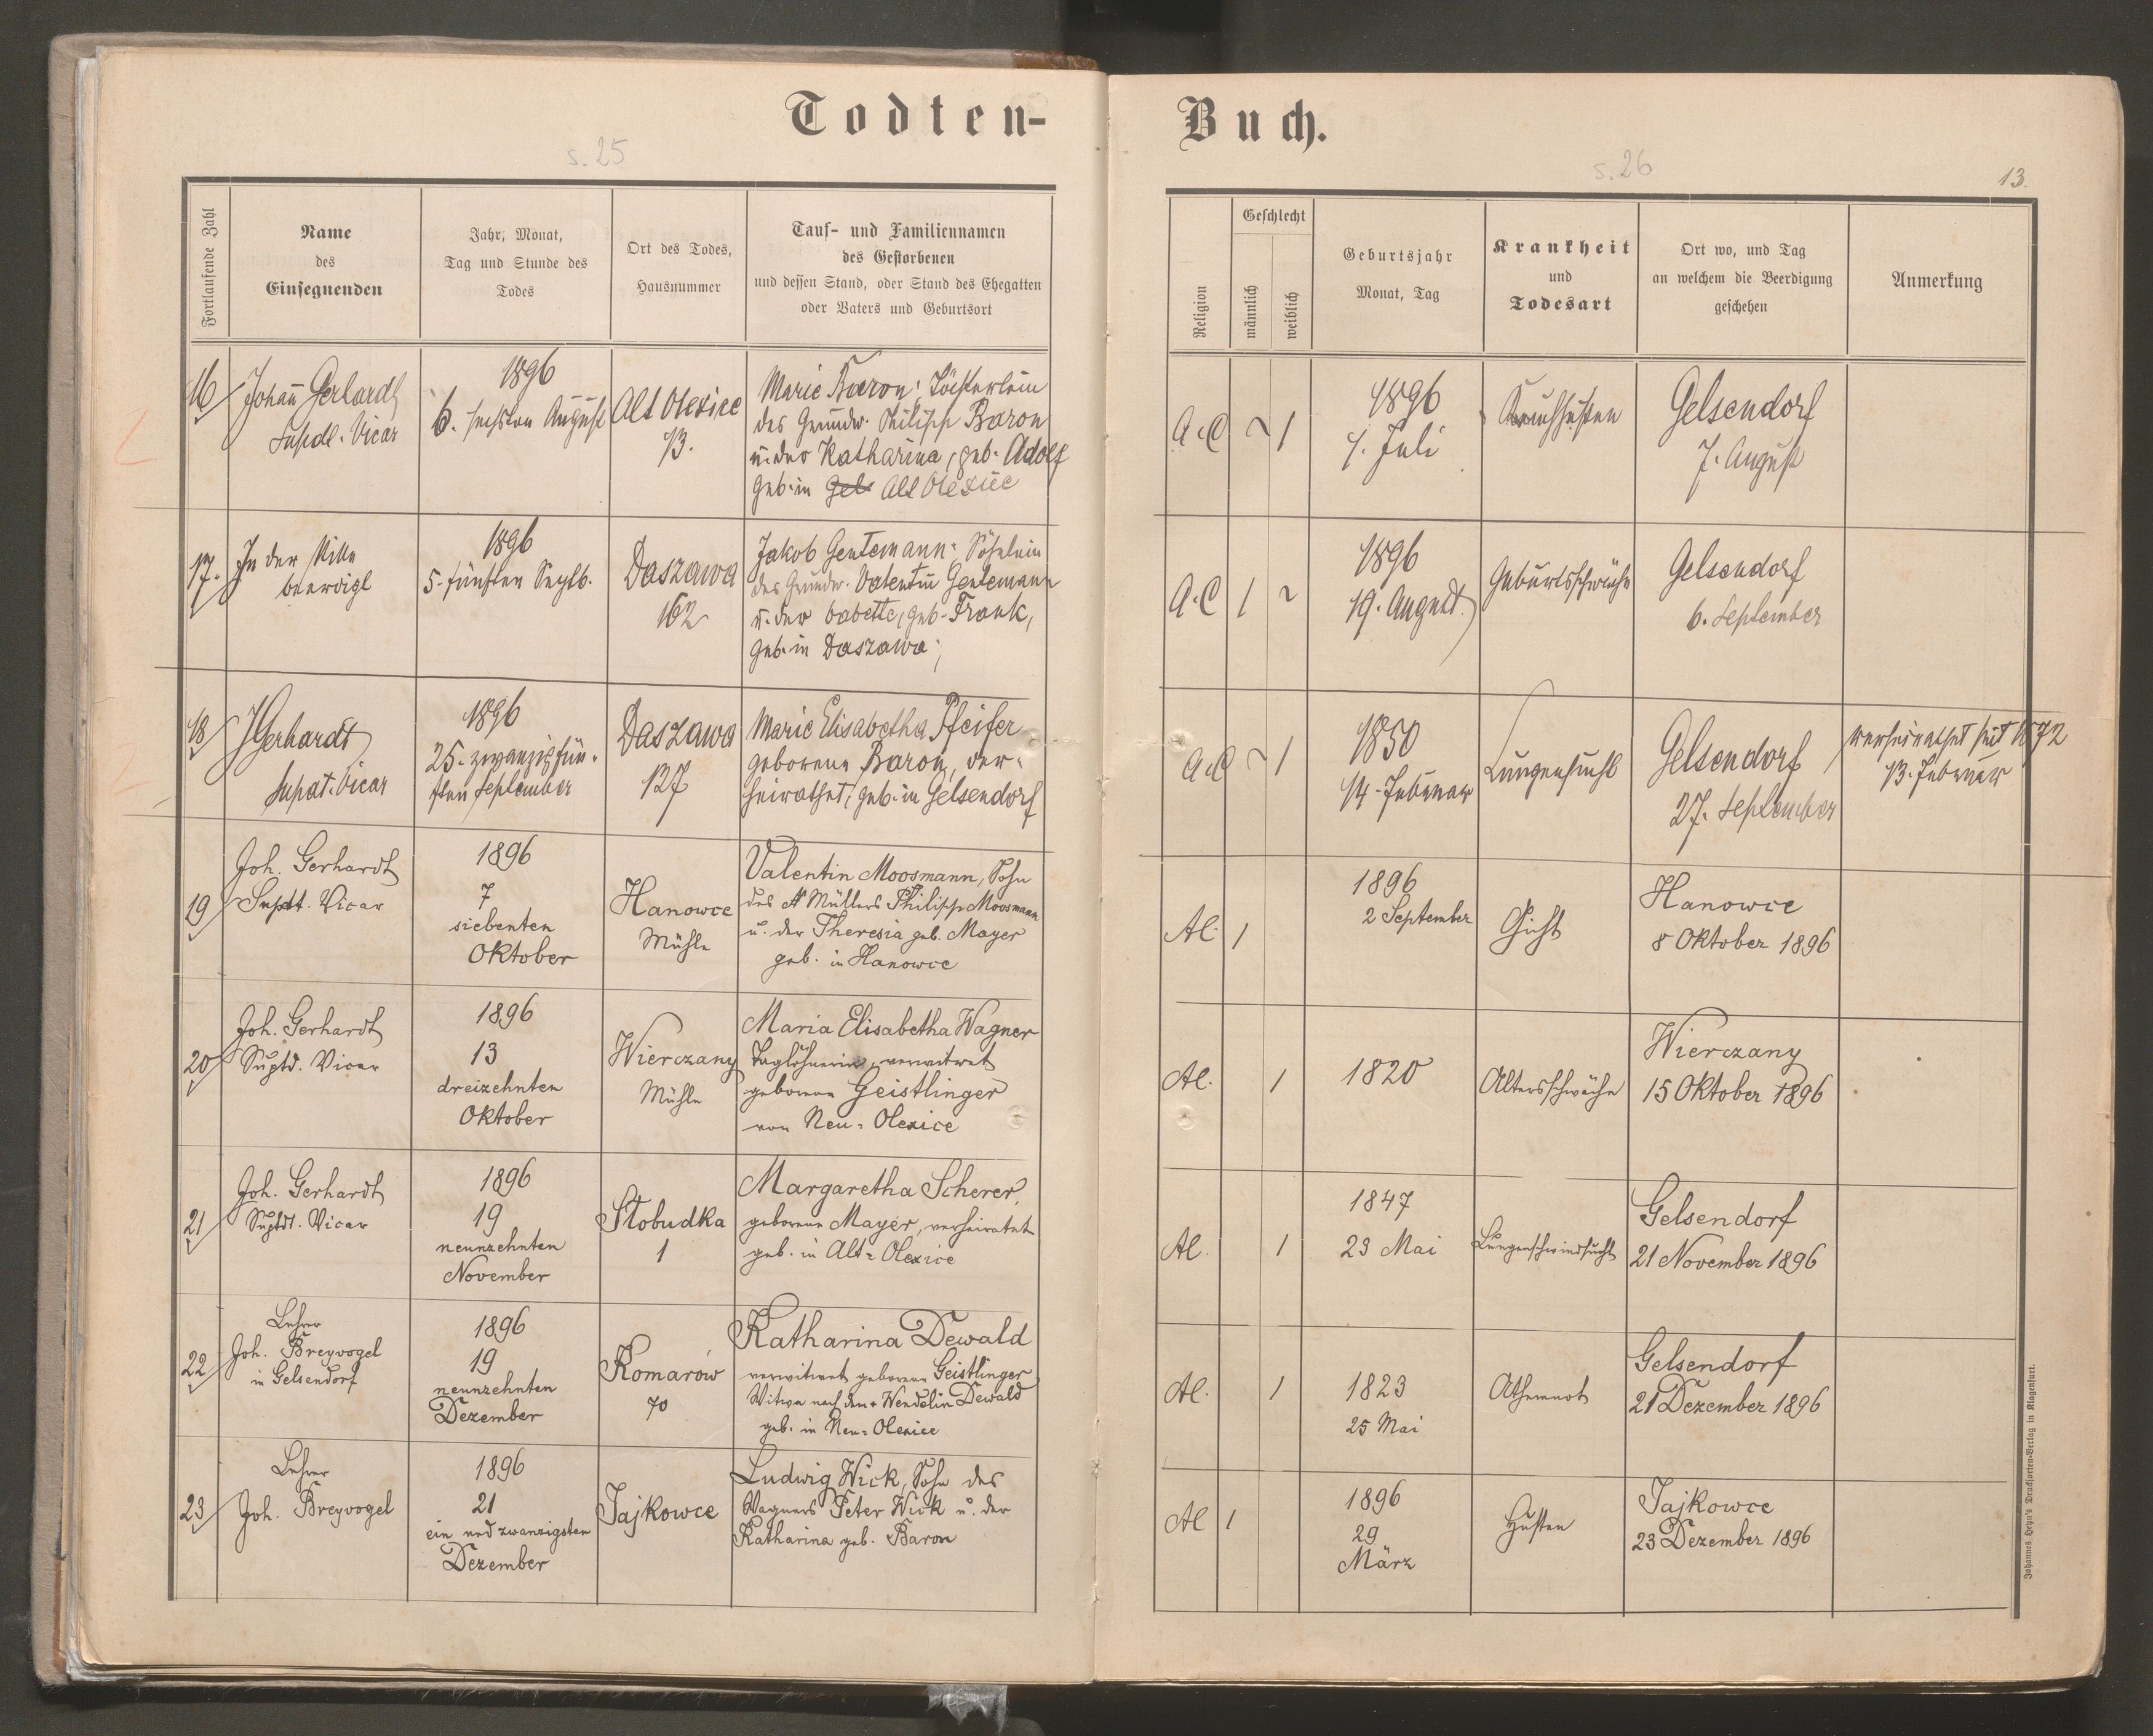 Todten-
Buch.
s. 25
s. 26
13.
Fortlaufende Zahl
Name
des
Einsegnenden
Jahr, Monat,
Tag und Stunde des
Todes
Ort des Todes,
Hausnummer
Tauf- und Familiennamen
des Gestorbenen
und dessen Stand, oder Stand des Ehegatten
oder Vaters und Geburtsort
Religion
Geschlecht
männlich
weiblich
Geburtsjahr
Monat, Tag
Krankheit
und
Todesart
Ort wo, und Tag
an welchem die Beerdigung
geschehen
Anmerkung
16
Johañ Gerhardt
Supdt. Vicar
1896
6. sechsten August
Alt Olexice
13.
Marie Baron, Töchterlein
des Grundw. Philipp Baron
u. der Katharina, geb. Adolf
geb. in Gel Alt Olexice
A.C
1
1896
1. Juli
Keuchhusten
Gelsendorf
7. August
17.
In der Stille
beerdigt
1896
5. fünften Septb.
Daszawa
162
Jakob Gentemann, Söhnlein
des Grundw. Valentin Gentemann
u. der Babette, geb. Frank,
geb. in Daszawa;
A.C
1
1896
19. August
Geburtsschwäche
Gelsendorf
6. September
18
JGerhardt
Supdt. Vicar
1896
25. zwanzigfün-
ften September
Daszawa
137
Marie Elisabetha Pfeifer
geborene Baron, ver-
heirathet, geb. in Gelsendorf
A.C
1
1850
14. Februar
Lungensucht
Gelsendorf
27. September
verheirathet seit 1872
13. Februar
19
Joh. Gerhardt
Supdt. Vicar
1896
7
siebenten
Oktober
Hanowce
Mühle
Valentin Moosmann, Sohn
des Müllers Philipp Moosmann
u. der Theresia geb. Mayer
geb. in Hanowce
AC.
1
1896
2 September
Gicht
Hanowce
8 Oktober 1896
20
Joh. Gerhardt
Suptd. Vicar
1896
13
dreizehnten
Oktober
Wierczany
Mühle
Maria Elisabetha Wagner
Taglöhnerin, verwitwet
geborene Geistlinger
von Neu-Olexice
AC.
1
1820
Altersschwäche
Wierczany
15 Oktober 1896
21
Joh. Gerhardt
Suptdt. Vicar
1896
19
neunzehnten
November
Stobudka
1
Margaretha Scherer,
geborene Mayer, verheiratet
geb. in Alt-Olexice
AC.
1
1847
23 Mai
Lungenschwindsucht
Gelsendorf
21 November 1896
22
Lehrer
Joh. Breyvogel
in Gelsendorf
1896
19
neunzehnten
Dezember
Komarów
70
Katharina Dewald
verwitwet geborene Geistlinger
Witwe nach dem + Wendelin Dewald
geb. in Neu-Olexice
AC.
1
1823
25 Mai
Athemnot
Gelsendorf
21 Dezember 1896
23
Lehrer
Joh. Breyvogel
1896
21
ein und zwanzigsten
Dezember
Jajkowce
Ludwig Wick, Sohn des
Wagners Peter Wick u. der
Katharina geb. Baron
AC
1
1896
29
März
Husten
Jajkowce
23 Dezember 1896
Johannes Heyn's Drucksorten-Verlag in Klagenfurt.